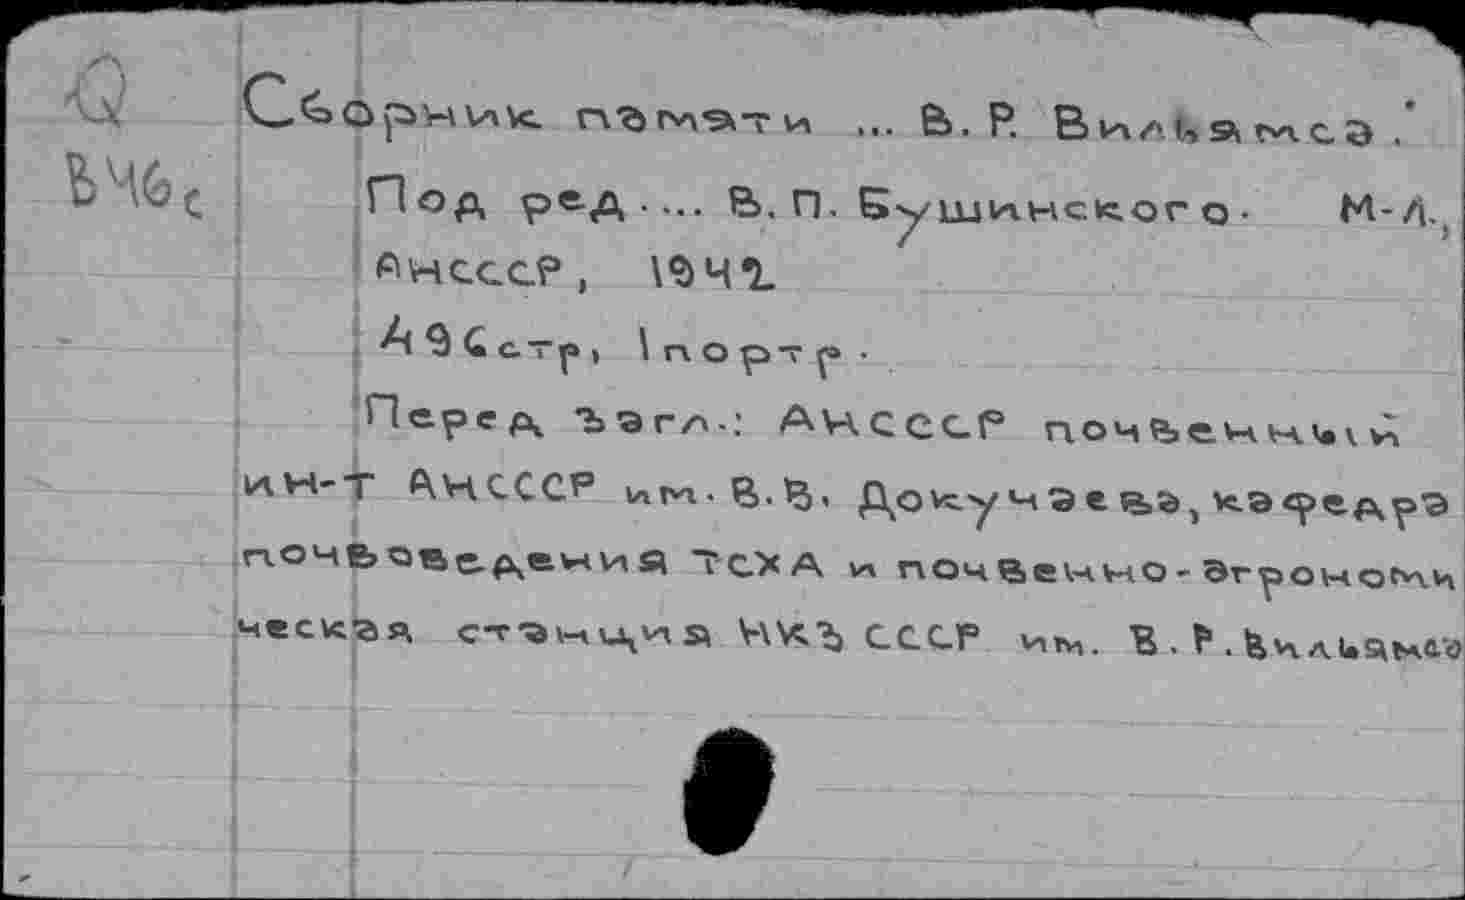 Q
В46с
Сборник памяти ... В. Р. Вильямса.
Под ред.... В. П. Бушинского. М-Л.,
АНСССР, 1942
196 стр, 1 портр.
Перед загл.: АНСССР почвенный
ин-т АНСССР им. В. В. Докучаева, кафедра
почвоведения ТСХА и почвенно-агрономи
ческая станция НКЗ СССР им. В. Р. Вильямса